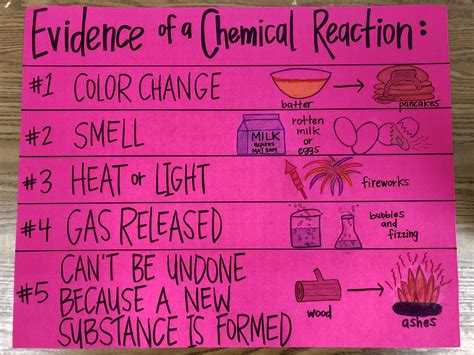 Evidence of a Chemical Reaction:
#1 COLOR CHANGE
batter
pancakes
#2 SMELL
MILK
EXPIRES
MAY 2009
rotten
milk
or
eggs
#3 HEAT or LIGHT
fireworks
#4 GAS RELEASED
bubbles
and
fizzing
#5 CAN'T BE UNDONE
BECAUSE A NEW
SUBSTANCE IS FORMED
wood
ashes